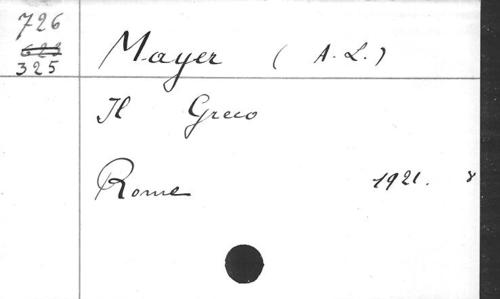 726
623
325
Mayer (A.L.)
Il Greco
Rome 1921. 8